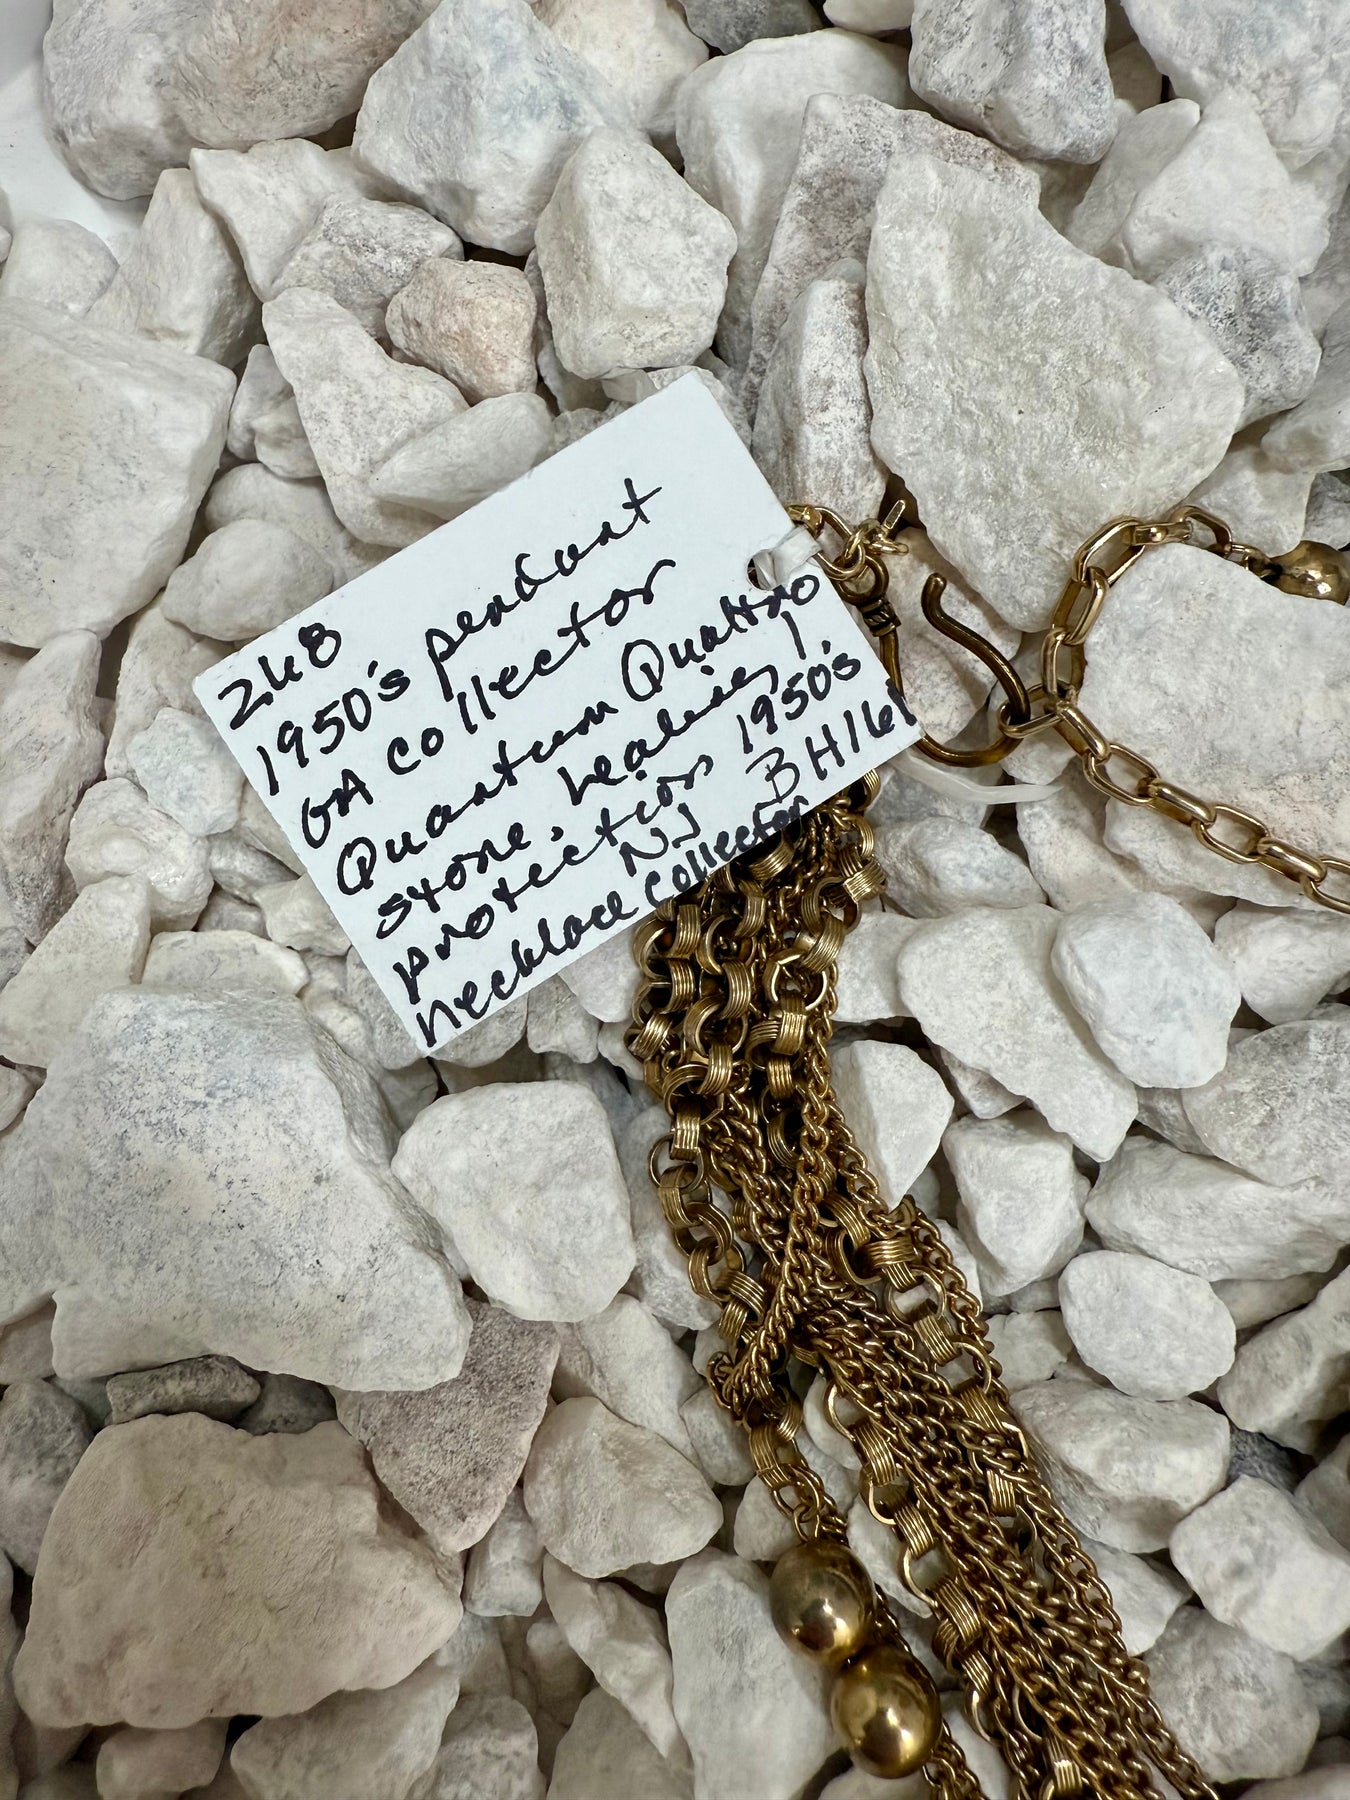 2H8
1950's pendant
GA collector
Quantum Quattro
stone. healing /
protection 1950's
NJ BH161
necklace collector